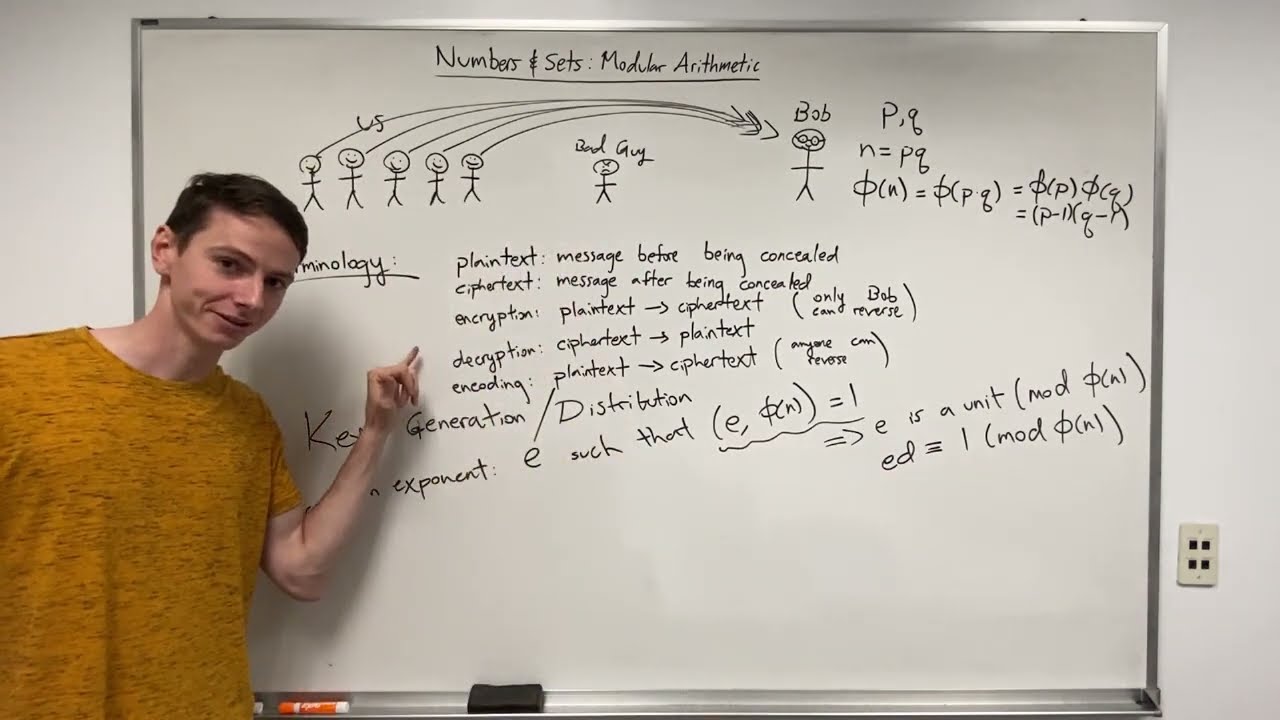 Numbers & Sets: Modular Arithmetic
us
Bad Guy
Bob
p,q
n=pq
ϕ(n) = ϕ(p·q) = ϕ(p)ϕ(q)
=(p-1)(q-1)
minology:
plaintext: message before being concealed
ciphertext: message after being concealed
encryption: plaintext → ciphertext (only Bob can reverse)
decryption: ciphertext → plaintext
encoding: plaintext → ciphertext (anyone can reverse)
Key Generation / Distribution
n exponent: e such that (e, ϕ(n)) = 1 ⇒ e is a unit (mod ϕ(n))
ed ≡ 1 (mod ϕ(n))